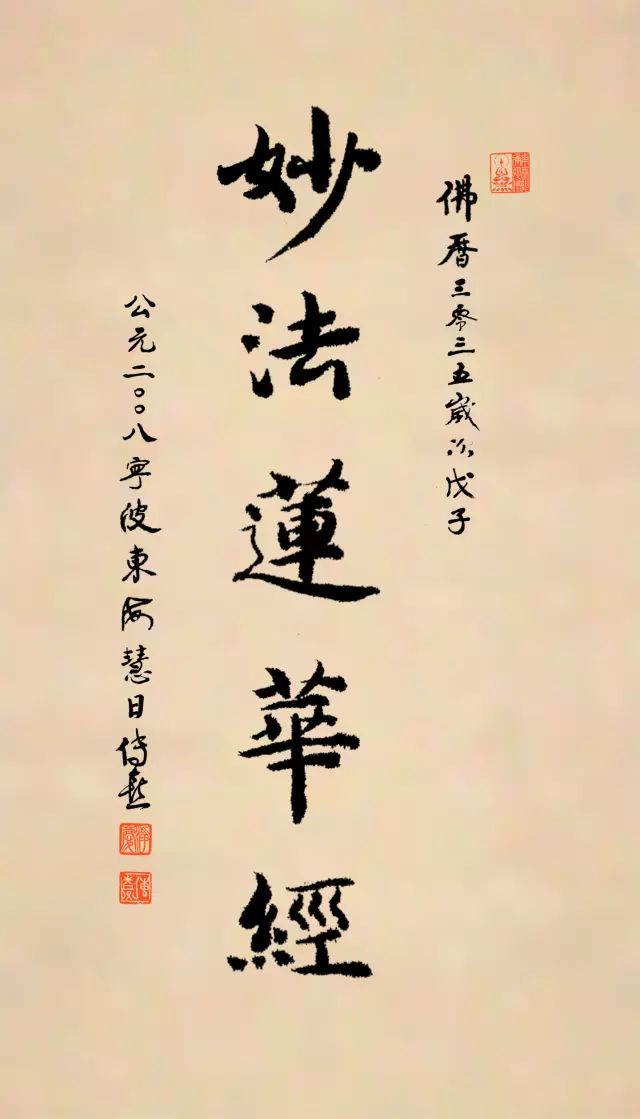 佛曆三零三五歲次戊子
妙法蓮華經
公元二〇〇八寧波東海慧日傳喜